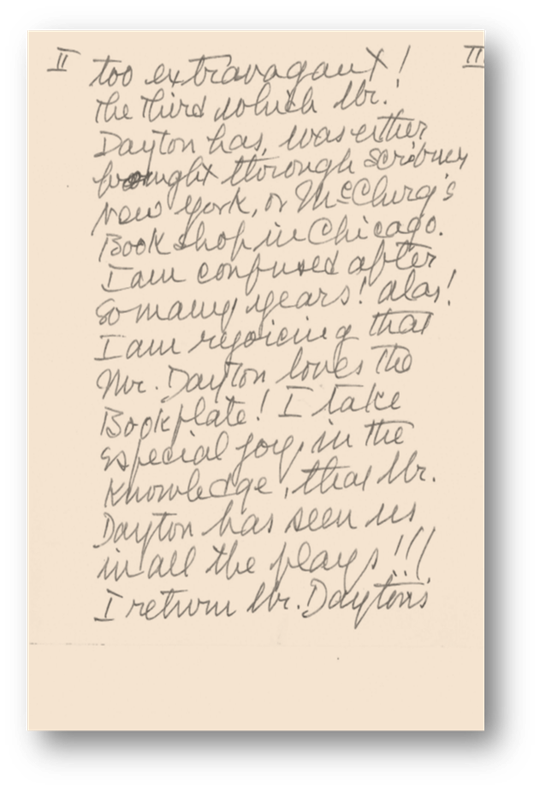 II
III
too extravagant!
The third which Mr.
Dayton has, was either
brought through Scribners
New York, or McClurg's
Book shop in Chicago.
I am confused after
so many years! alas!
I am rejoicing that
Mr. Dayton loves the
Bookplate! I take
especial joy, in the
knowledge, that Mr.
Dayton has seen us
in all the plays!!!
I return Mr. Dayton's